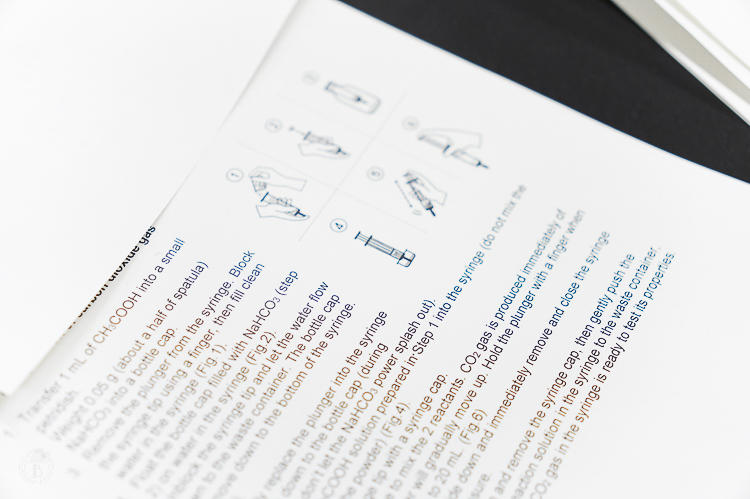 1
2
3
4
5
6
carbon dioxide gas
1 Transfer 1 mL of CH₃COOH into a small
petridish.
Weight 0.05 g (about a half of spatula)
NaHCO₃ into a bottle cap.
3 Remove the plunger from the syringe. Block
the syringe tip using a finger, then fill clean
water in the syringe (Fig 1).
Float the bottle cap filled with NaHCO₃ (step
2) on water in the syringe (Fig 2).
unblock the syringe tip and let the water flow
to the waste container. The bottle cap
move down to the bottom of the syringe.
replace the plunger into the syringe
down to the bottle cap (during
don't let the NaHCO₃ power splash out).
COOH solution prepared in Step 1 into the syringe (do not mix the
the powder) (Fig 4).
tip with a syringe cap.
to mix the 2 reactants, CO₂ gas is produced immediately of
will gradually move up. Hold the plunger with a finger when
to 20 mL (Fig 6)
down and immediately remove and close the syringe
and remove the syringe cap, then gently push the
action solution in the syringe to the waste container,
CO₂ gas in the syringe is ready to test its properties.